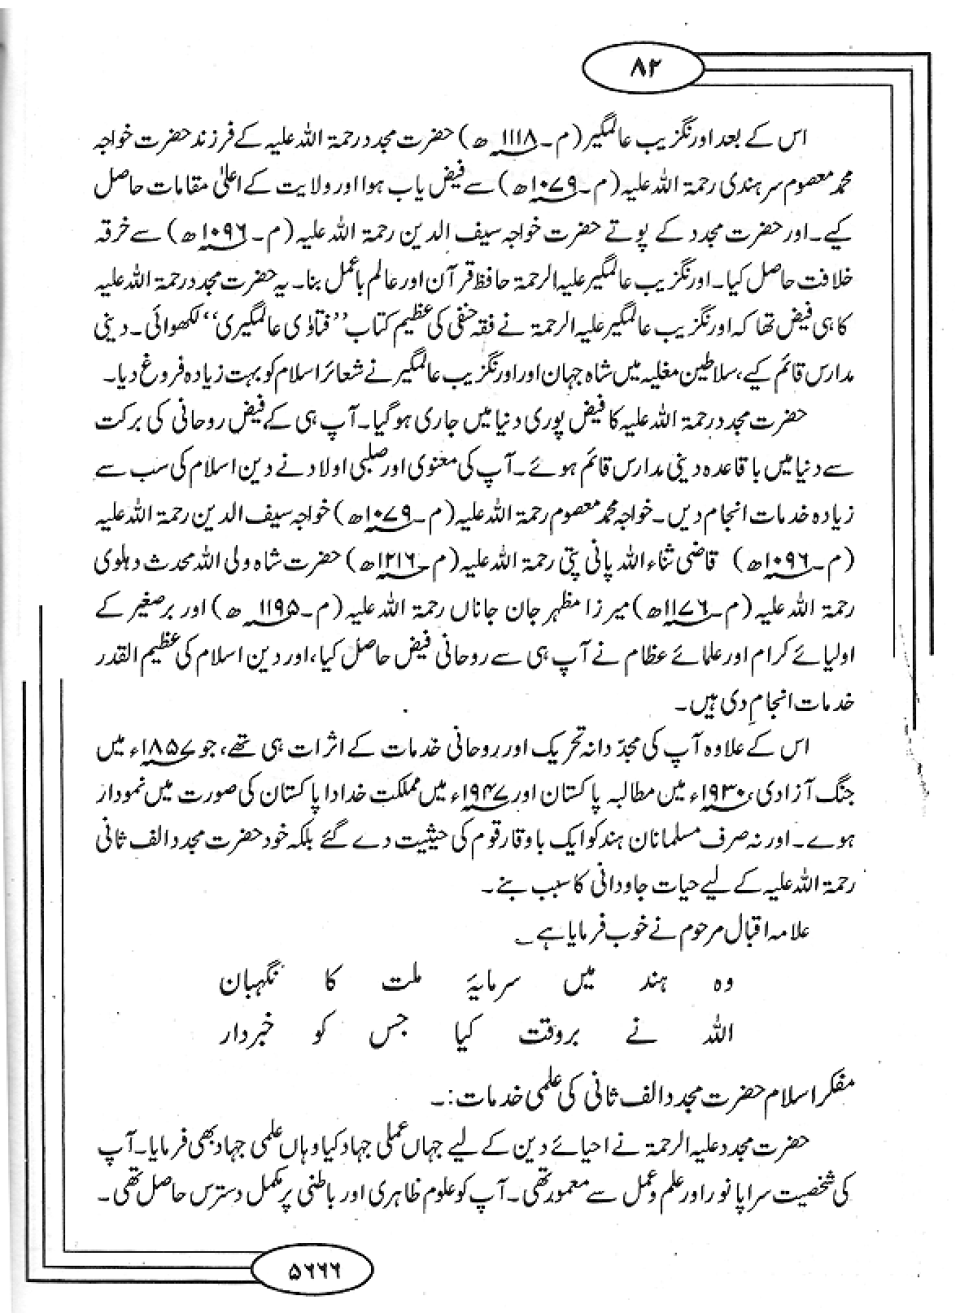 ۸۲
اس کے بعد اورنگزیب عالمگیر (م۔۱۱۱۸ھ) حضرت مجدد رحمۃ اللہ علیہ کے فرزند حضرت خواجہ
محمد معصوم سرہندی رحمۃ اللہ علیہ (م۔۱۰۷۹ھ) سے فیض یاب ہوا اور ولایت کے اعلیٰ مقامات حاصل
کیے۔ اور حضرت مجدد کے پوتے حضرت خواجہ سیف الدین رحمۃ اللہ علیہ (م۔۱۰۹۶ھ) سے خرقہ
خلافت حاصل کیا۔ اورنگزیب عالمگیر علیہ الرحمۃ حافظ قرآن اور عالم باعمل بنا۔ یہ حضرت مجدد رحمۃ اللہ علیہ
کا ہی فیض تھا کہ اورنگزیب عالمگیر علیہ الرحمۃ نے فقہ حنفی کی عظیم کتاب ’’فتاوٰی عالمگیری‘‘ لکھوائی۔ دینی
مدارس قائم کیے، سلاطین مغلیہ میں شاہ جہان اور اورنگزیب عالمگیر نے شعائر اسلام کو بہت زیادہ فروغ دیا۔
حضرت مجدد رحمۃ اللہ علیہ کا فیض پوری دنیا میں جاری ہو گیا۔ آپ ہی کے فیض روحانی کی برکت
سے دنیا میں باقاعدہ دینی مدارس قائم ہوئے۔ آپ کی معنوی اور صلبی اولاد نے دین اسلام کی سب سے
زیادہ خدمات انجام دیں۔ خواجہ محمد معصوم رحمۃ اللہ علیہ (م۔۱۰۷۹ھ) خواجہ سیف الدین رحمۃ اللہ علیہ
(م۔۱۰۹۶ھ) قاضی ثناء اللہ پانی پتی رحمۃ اللہ علیہ (م۔۱۲۱۶ھ) حضرت شاہ ولی اللہ محدث دہلوی
رحمۃ اللہ علیہ (م۔۱۱۷۶ھ) میرزا مظہر جان جاناں رحمۃ اللہ علیہ (م۔۱۱۹۵ھ) اور برصغیر کے
اولیائے کرام اور علمائے عظام نے آپ ہی سے روحانی فیض حاصل کیا، اور دین اسلام کی عظیم القدر
خدمات انجام دی ہیں۔
اس کے علاوہ آپ کی مجدّدانہ تحریک اور روحانی خدمات کے اثرات ہی تھے، جو ۱۸۵۷ء میں
جنگ آزادی، ۱۹۳۰ء میں مطالبہ پاکستان اور ۱۹۴۷ء میں مملکت خداداپاکستان کی صورت میں نمودار
ہوے۔ اور نہ صرف مسلمانان ہند کو ایک باوقار قوم کی حیثیت دے گئے بلکہ خود حضرت مجدد الف ثانی
رحمۃ اللہ علیہ کے لیے حیات جاودانی کا سبب بنے۔
علامہ اقبال مرحوم نے خوب فرمایا ہے
وہ ہند میں سرمایۂ ملت کا نگہبان
اللہ نے بروقت کیا جس کو خبردار
مفکر اسلام حضرت مجدد الف ثانی کی علمی خدمات:۔
حضرت مجدد علیہ الرحمۃ نے احیائے دین کے لیے جہاں عملی جہاد کیا وہاں علمی جہاد بھی فرمایا۔ آپ
کی شخصیت سراپا نور اور علم و عمل سے معمور تھی۔ آپ کو علوم ظاہری اور باطنی پر مکمل دسترس حاصل تھی۔
۵۶۶۶